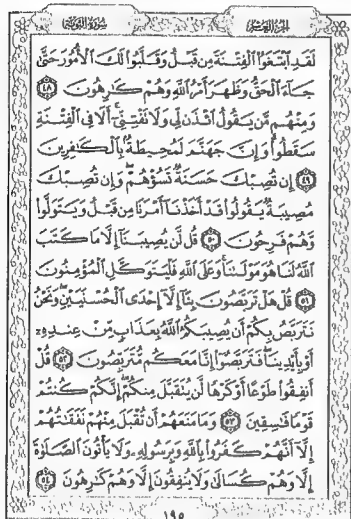 الجزء العاشر سورة التوبة
لَقَدِ ٱبْتَغَوُا۟ ٱلْفِتْنَةَ مِن قَبْلُ وَقَلَّبُوا۟ لَكَ ٱلْأُمُورَ حَتَّىٰ
جَآءَ ٱلْحَقُّ وَظَهَرَ أَمْرُ ٱللَّهِ وَهُمْ كَـٰرِهُونَ ٤٨
وَمِنْهُم مَّن يَقُولُ ٱئْذَن لِّى وَلَا تَفْتِنِّىٓ ۚ أَلَا فِى ٱلْفِتْنَةِ
سَقَطُوا۟ ۗ وَإِنَّ جَهَنَّمَ لَمُحِيطَةٌۢ بِٱلْكَـٰفِرِينَ
٤٩ إِن تُصِبْكَ حَسَنَةٌ تَسُؤْهُمْ ۖ وَإِن تُصِبْكَ
مُصِيبَةٌ يَقُولُوا۟ قَدْ أَخَذْنَآ أَمْرَنَا مِن قَبْلُ وَيَتَوَلَّوا۟
وَّهُمْ فَرِحُونَ ٥٠ قُل لَّن يُصِيبَنَآ إِلَّا مَا كَتَبَ
ٱللَّهُ لَنَا هُوَ مَوْلَىٰنَا ۚ وَعَلَى ٱللَّهِ فَلْيَتَوَكَّلِ ٱلْمُؤْمِنُونَ
٥١ قُلْ هَلْ تَرَبَّصُونَ بِنَآ إِلَّآ إِحْدَى ٱلْحُسْنَيَيْنِ ۖ وَنَحْنُ
نَتَرَبَّصُ بِكُمْ أَن يُصِيبَكُمُ ٱللَّهُ بِعَذَابٍ مِّنْ عِندِهِۦٓ
أَوْ بِأَيْدِينَا ۖ فَتَرَبَّصُوٓا۟ إِنَّا مَعَكُم مُّتَرَبِّصُونَ ٥٢ قُلْ
أَنفِقُوا۟ طَوْعًا أَوْ كَرْهًا لَّن يُتَقَبَّلَ مِنكُمْ ۖ إِنَّكُمْ كُنتُمْ
قَوْمًا فَـٰسِقِينَ ٥٣ وَمَا مَنَعَهُمْ أَن تُقْبَلَ مِنْهُمْ نَفَقَـٰتُهُمْ
إِلَّآ أَنَّهُمْ كَفَرُوا۟ بِٱللَّهِ وَبِرَسُولِهِۦ وَلَا يَأْتُونَ ٱلصَّلَوٰةَ
إِلَّا وَهُمْ كُسَالَىٰ وَلَا يُنفِقُونَ إِلَّا وَهُمْ كَـٰرِهُونَ ٥٤
١٩٥